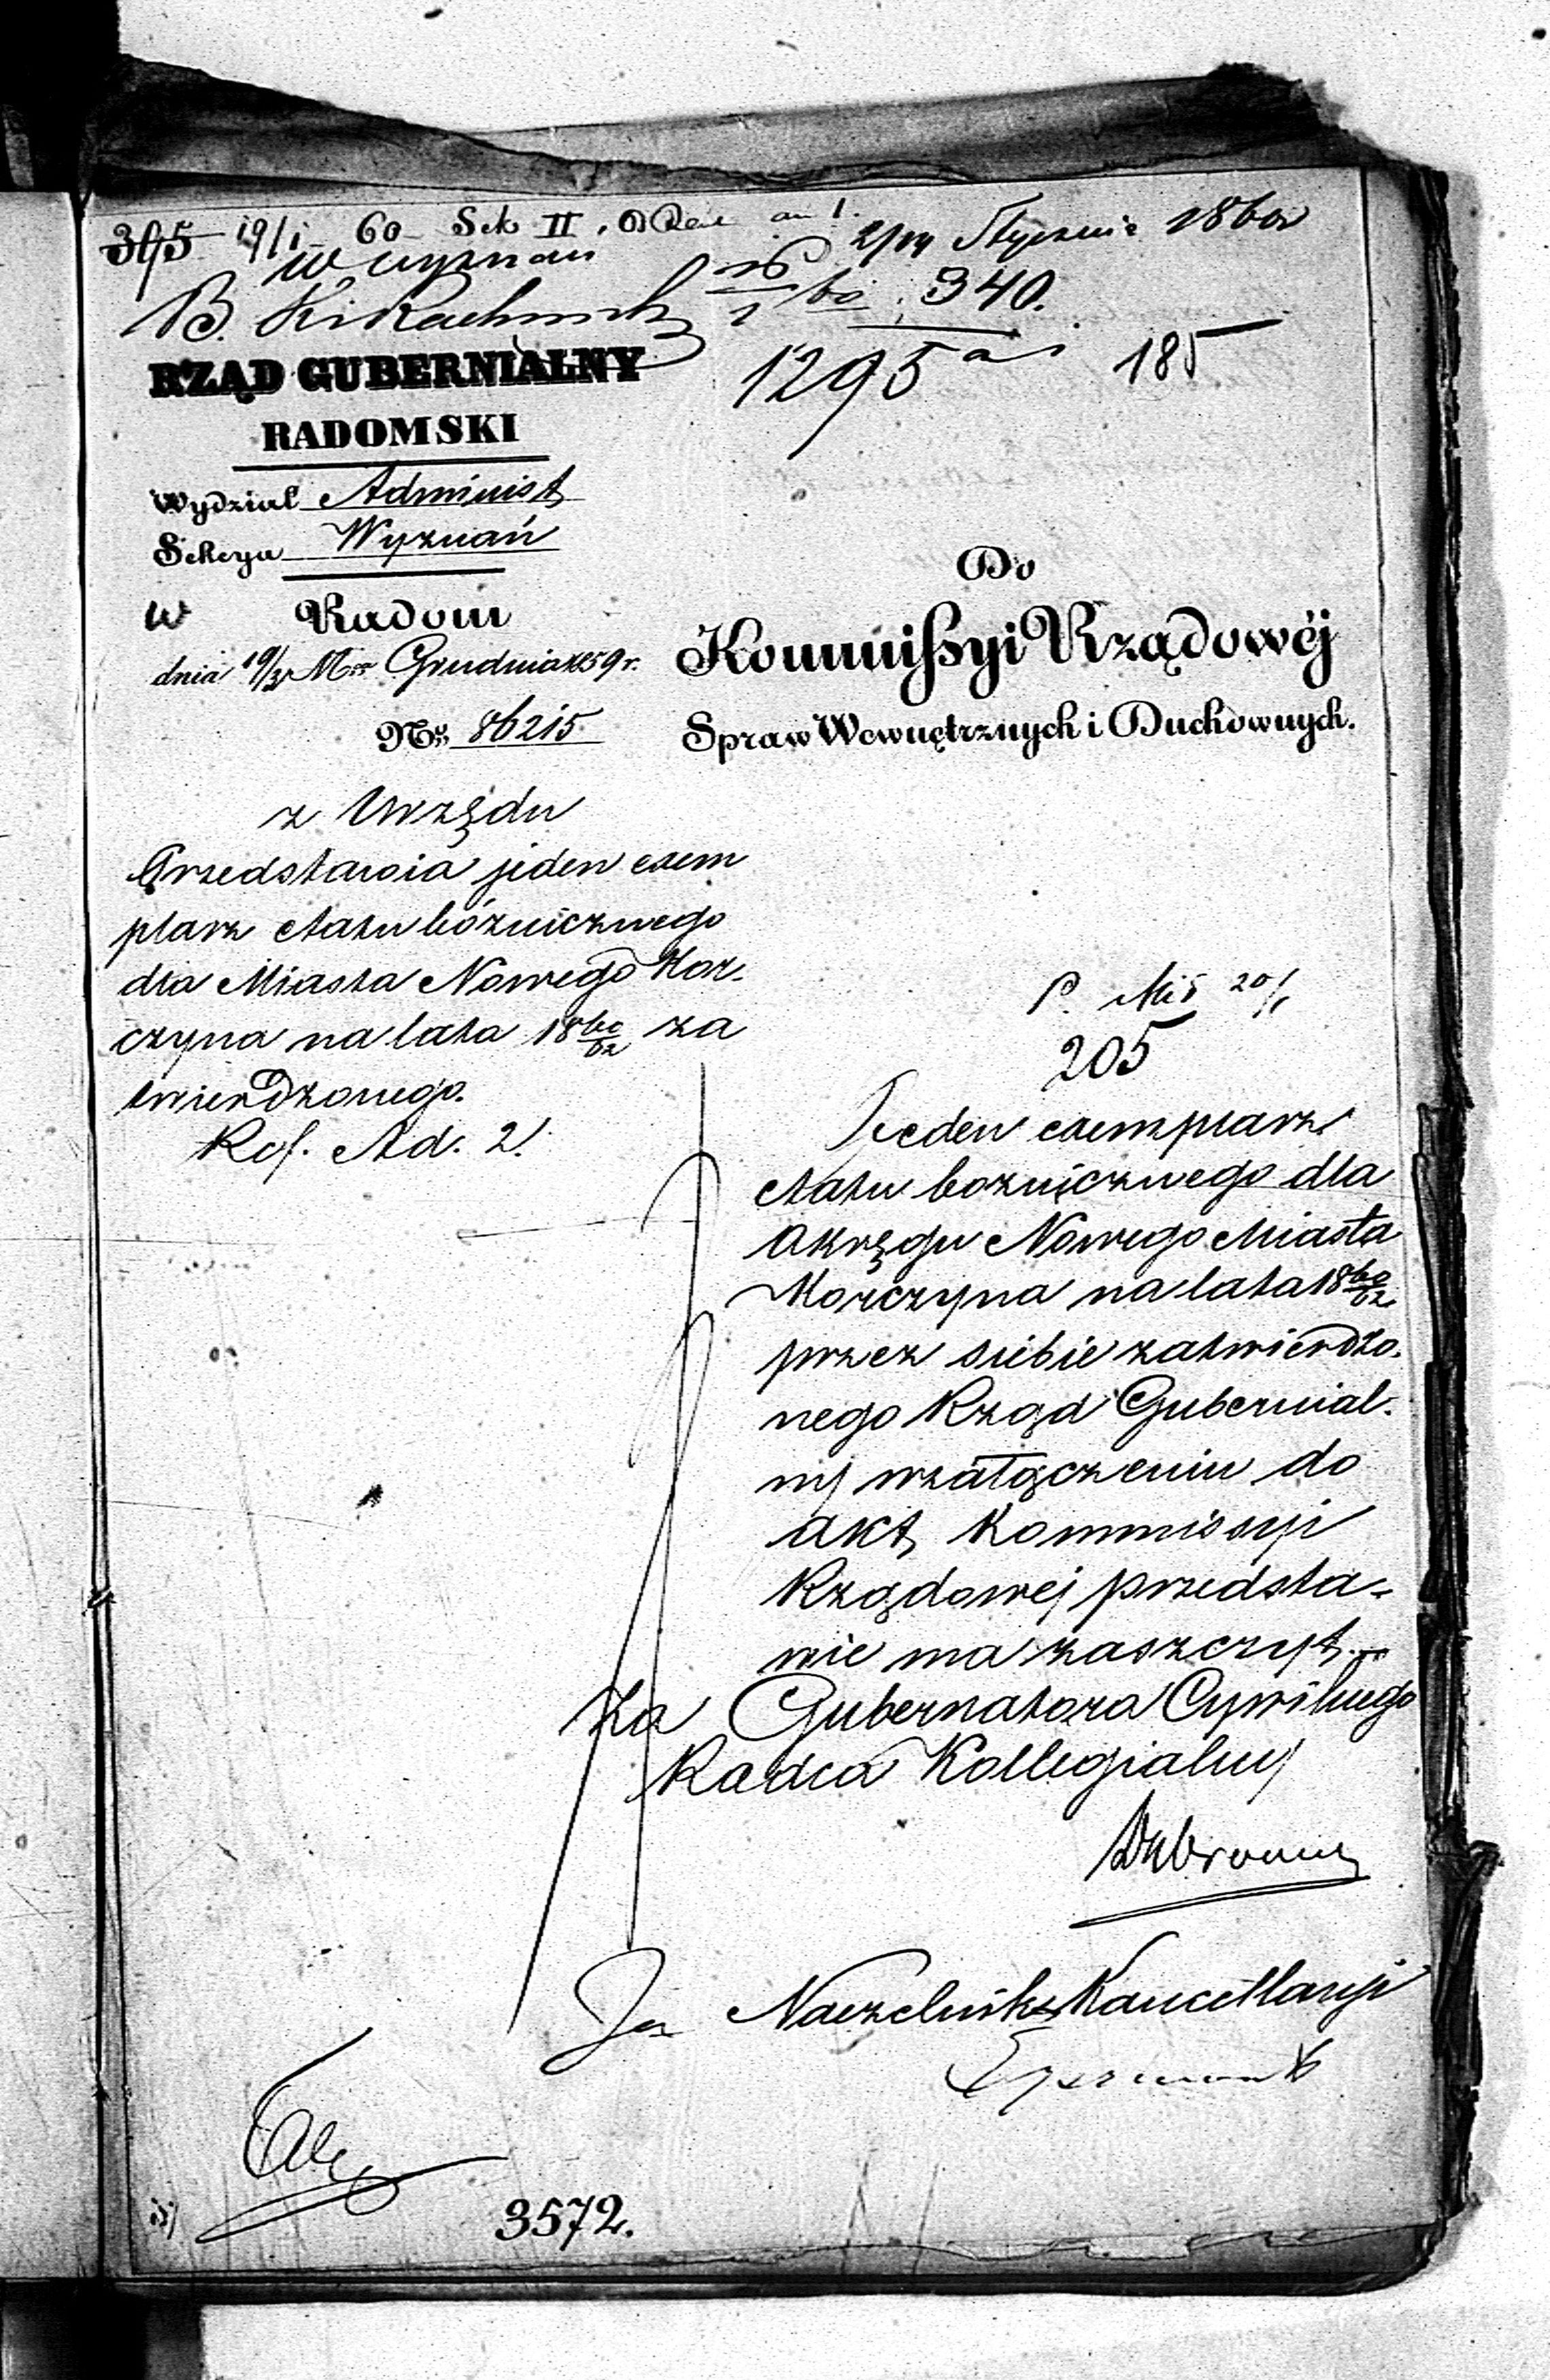 395 19/1 60 Sek II
2/14 Stycznia 1860
w wyznań
340.
1295 185
RZĄD GUBERNIALNY
RADOMSKI
Wydział Administ
Sekcya Wyznań
w Radom
dnia 19/31 Mca Grudnia 1859 r.
No. 86215
Do
Kommissyi Rządowéj
Spraw Wewnętrznych i Duchownych.
z Urzędu
Przedstawia jeden exem
plarz etatu bóżnicznego
dla Miasta Nowego Kor-
czyna na lata 18 60/62 za
twierdzonego.
Ref. Ad. 2.
20/1
205
Jeden exemplarz
etatu bożnicznego dla
Okręgu Nowego Miasta
Korczyna na lata 18 60/62
przez siebie zatwierdzo-
nego Rząd Gubernial-
ny w załączeniu do
akt Kommissyi
Rządowej przedsta-
wie ma zaszczyt.
Za Gubernatora Cywilnego
Radca Kollegialny
Za Naczelnika Kancellaryi
3572.